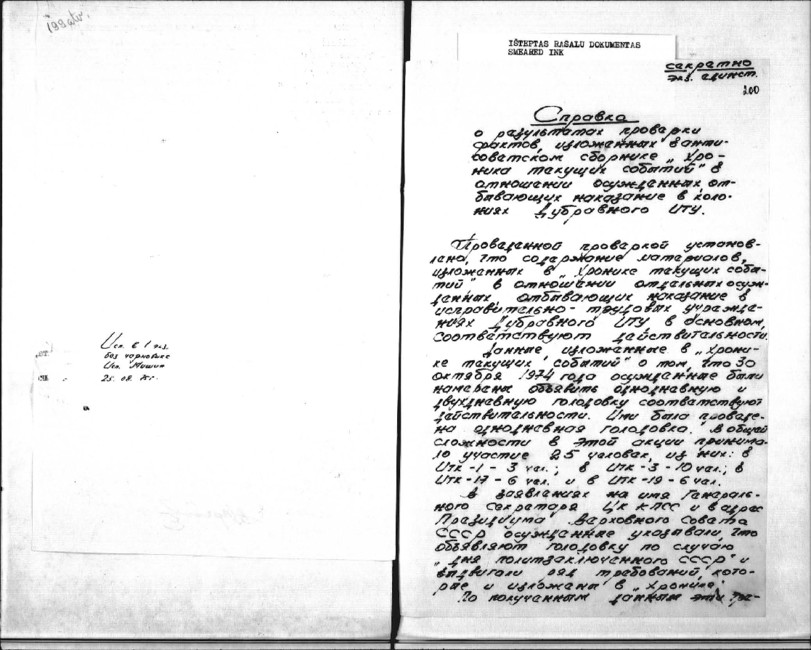 Исп. в 1 экз.
без черновика
Исп. Мошин
25.08.
IŠTEPTAS RAŠALU DOKUMENTAS
SMEARED INK
секретно
экз. единст.
200
Справка
о результатах проверки
фактов, изложенных в анти-
советском сборнике „Хро-
ника текущих событий" в
отношении осужденных, от-
бывающих наказание в коло-
ниях Дубравного ИТУ.
Проведенной проверкой установ-
лено, что содержание материалов,
изложенных в „Хронике текущих собы-
тий" в отношении отдельных осуж-
денных отбывающих наказание в
исправительно-трудовых учрежде-
ниях Дубравного ИТУ в основном,
соответствуют действительности.
Данные изложенные в „Хрони-
ке текущих событий" о том, что 30
октября 1974 года осужденные были
намерены объявить однодневную и
двухдневную голодовку соответствуют
действительности. Ими была проведе-
на однодневная голодовка. В общей
сложности в этой акции принима-
ло участие 25 человек, из них: в
ИТК-1-3 чел.; в ИТК-3-10 чел.; в
ИТК-17-6 чел. и в ИТК-19-6 чел.
В заявлениях на имя Генераль-
ного секретаря ЦК КПСС и в адрес
Президиума Верховного Совета
СССР осужденные указывали, что
объявляют голодовку по случаю
„дня политзаключенного СССР" и
выдвигали ряд требований, кото-
рые и изложены в „Хронике".
По полученным данным эти тре-